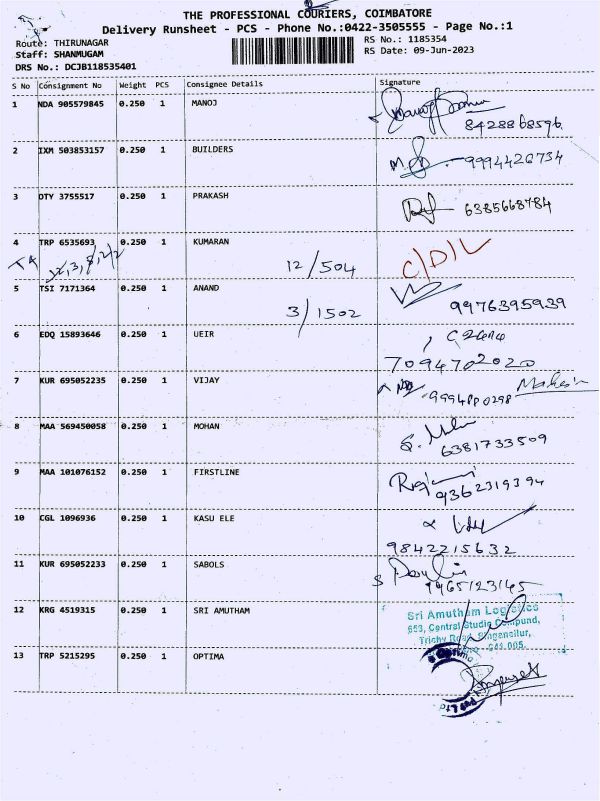 THE PROFESSIONAL COURIERS, COIMBATORE
Delivery Runsheet - PCS - Phone No.:0422-3505555 - Page No.:1
Route: THIRUNAGAR
RS No.: 1185354
Staff: SHANMUGAM
RS Date: 09-Jun-2023
DRS No.: DCJB118535401
S No Consignment No Weight PCS Consignee Details Signature
1 NDA 905579845 0.250 1 MANOJ
8428868596
2 IXM 503853157 0.250 1 BUILDERS
9994426734
3 DTY 3755517 0.250 1 PRAKASH
6385668784
4 TRP 6535693 0.250 1 KUMARAN
12/504 C/D/L
5 TSI 7171364 0.250 1 ANAND
3/1502 9976395939
6 EDQ 15893646 0.250 1 UEIR
7094702020
7 KUR 695052235 0.250 1 VIJAY
8 MAA 569450058 0.250 1 MOHAN
6381733509
9 MAA 101076152 0.250 1 FIRSTLINE
9362319394
10 CGL 1096936 0.250 1 KASU ELE
9842215632
11 KUR 695052233 0.250 1 SABOLS
9965123145
12 KRG 4519315 0.250 1 SRI AMUTHAM
Sri Amutham Logistics
653, Central Studio Compund,
Trichy Road, Singanallur,
13 TRP 5215295 0.250 1 OPTIMA